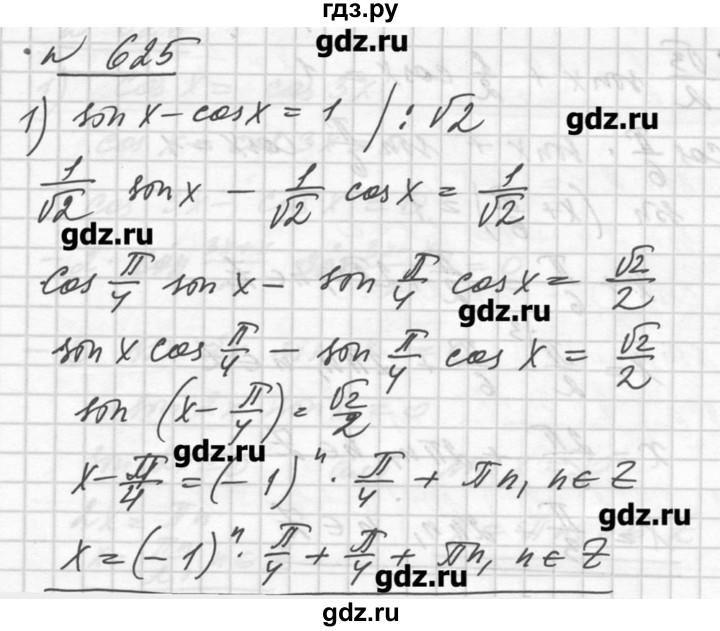 гдз.ру
gdz.ru
№ 625
1) sin x - cos x = 1 / : √2
gdz.ru
1/√2 sin x - 1/√2 cos x = 1/√2
gdz.ru
cos π/4 sin x - sin π/4 cos x = √2/2
gdz.ru
sin x cos π/4 - sin π/4 cos x = √2/2
sin (x - π/4) = √2/2
gdz.ru
x - π/4 = (-1)^n · π/4 + πn, n ∈ Z
gdz.ru
x = (-1)^n · π/4 + π/4 + πn, n ∈ Z
gdz.ru
gdz.ru